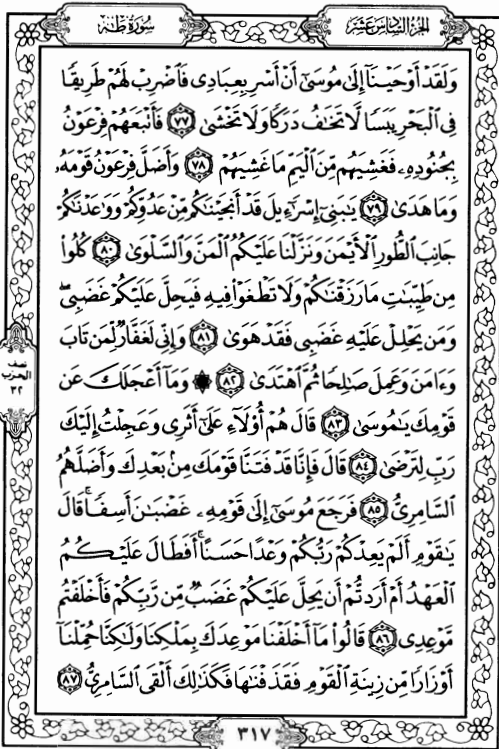 سُورَةُ طه
الجزء السادس عشر
وَلَقَدْ أَوْحَيْنَآ إِلَىٰ مُوسَىٰٓ أَنْ أَسْرِ بِعِبَادِى فَٱضْرِبْ لَهُمْ طَرِيقًا
فِى ٱلْبَحْرِ يَبَسًا لَّا تَخَٰفُ دَرَكًا وَلَا تَخْشَىٰ ٧٧ فَأَتْبَعَهُمْ فِرْعَوْنُ
بِجُنُودِهِۦ فَغَشِيَهُم مِّنَ ٱلْيَمِّ مَا غَشِيَهُمْ ٧٨ وَأَضَلَّ فِرْعَوْنُ قَوْمَهُۥ
وَمَا هَدَىٰ ٧٩ يَٰبَنِىٓ إِسْرَٰٓءِيلَ قَدْ أَنجَيْنَٰكُم مِّنْ عَدُوِّكُمْ وَوَٰعَدْنَٰكُمْ
جَانِبَ ٱلطُّورِ ٱلْأَيْمَنَ وَنَزَّلْنَا عَلَيْكُمُ ٱلْمَنَّ وَٱلسَّلْوَىٰ ٨٠ كُلُوا۟
مِن طَيِّبَٰتِ مَا رَزَقْنَٰكُمْ وَلَا تَطْغَوْا۟ فِيهِ فَيَحِلَّ عَلَيْكُمْ غَضَبِىۖ
وَمَن يَحْلِلْ عَلَيْهِ غَضَبِى فَقَدْ هَوَىٰ ٨١ وَإِنِّى لَغَفَّارٌ لِّمَن تَابَ
وَءَامَنَ وَعَمِلَ صَٰلِحًا ثُمَّ ٱهْتَدَىٰ ٨٢ ۞ وَمَآ أَعْجَلَكَ عَن
قَوْمِكَ يَٰمُوسَىٰ ٨٣ قَالَ هُمْ أُو۟لَآءِ عَلَىٰٓ أَثَرِى وَعَجِلْتُ إِلَيْكَ
رَبِّ لِتَرْضَىٰ ٨٤ قَالَ فَإِنَّا قَدْ فَتَنَّا قَوْمَكَ مِنۢ بَعْدِكَ وَأَضَلَّهُمُ
ٱلسَّامِرِىُّ ٨٥ فَرَجَعَ مُوسَىٰٓ إِلَىٰ قَوْمِهِۦ غَضْبَٰنَ أَسِفًاۚ قَالَ
يَٰقَوْمِ أَلَمْ يَعِدْكُمْ رَبُّكُمْ وَعْدًا حَسَنًاۚ أَفَطَالَ عَلَيْكُمُ
ٱلْعَهْدُ أَمْ أَرَدتُّمْ أَن يَحِلَّ عَلَيْكُمْ غَضَبٌ مِّن رَّبِّكُمْ فَأَخْلَفْتُم
مَّوْعِدِى ٨٦ قَالُوا۟ مَآ أَخْلَفْنَا مَوْعِدَكَ بِمَلْكِنَا وَلَٰكِنَّا حُمِّلْنَآ
أَوْزَارًا مِّن زِينَةِ ٱلْقَوْمِ فَقَذَفْنَٰهَا فَكَذَٰلِكَ أَلْقَى ٱلسَّامِرِىُّ ٨٧
نصف
الحزب
٣٢
٣١٧